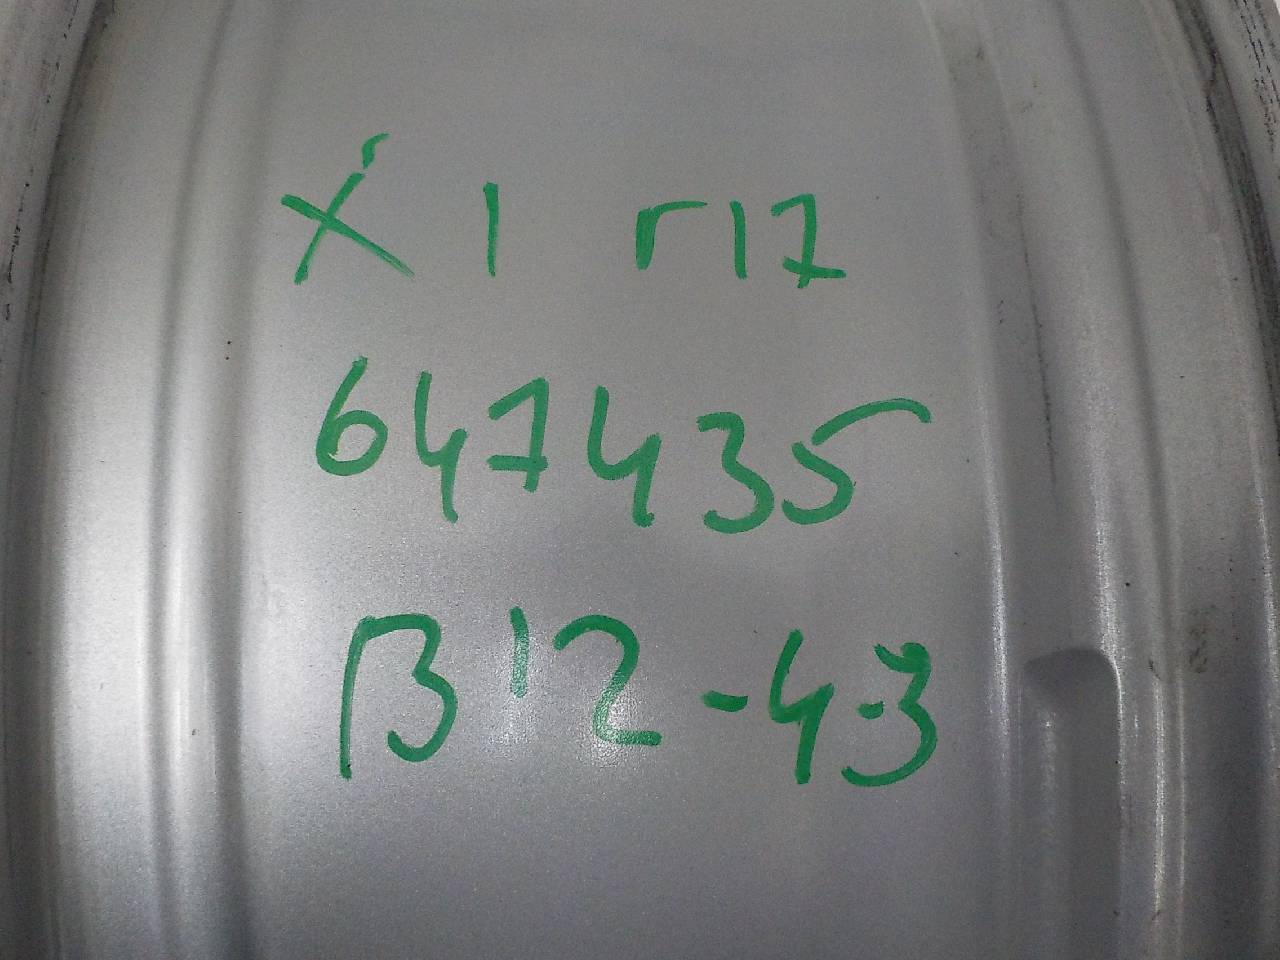 X 1 r17
647435
B12-4-3